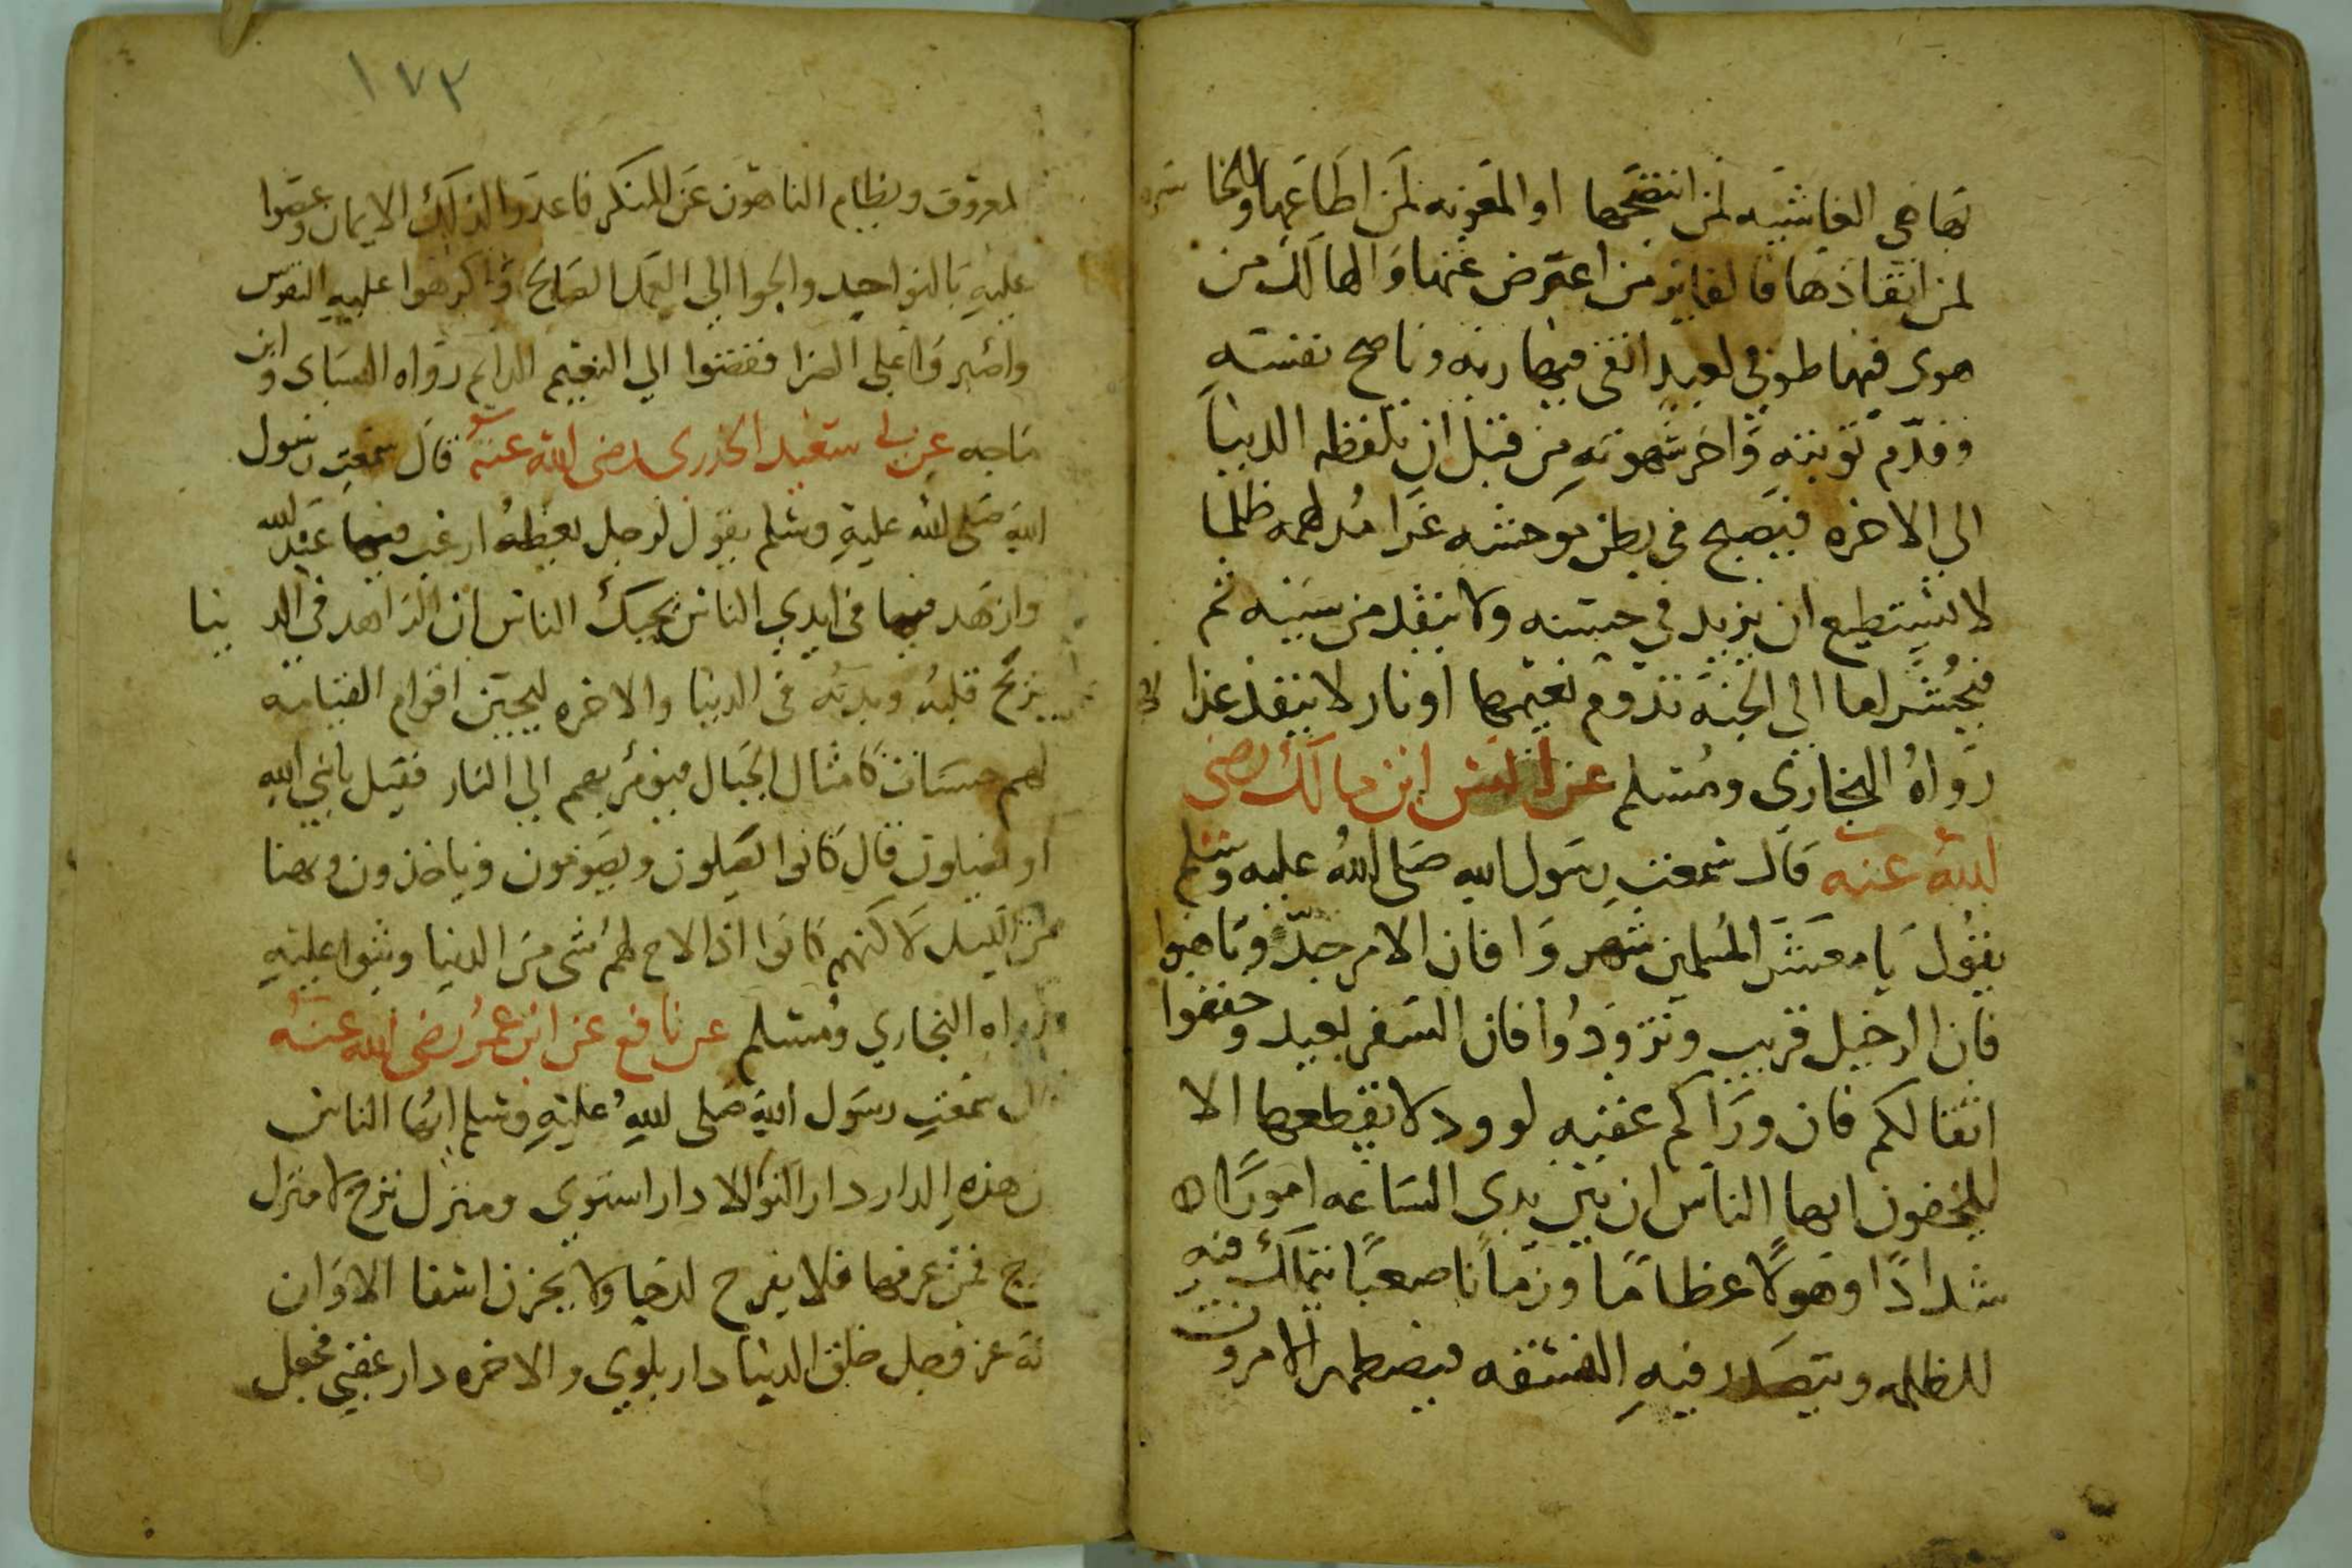 بها هي الغاشيه لمن انتضحها او المغويه لمن اطاعها والخا سره
لمن انقاذها فالفايز من اعترض عنها والهالك من
هوى فيها طوبى لعبد اتقى فيها ربه وناصح نفسه
وقدم توبته واخر شهوته من قبل ان تلفظه الدنيا
الى الاخره فيصبح في بطن موحشه غبرا مدلهمه ظلما
لا يستطيع ان يزيد في حسنه ولا ينقد من سيئه ثم
فيحشر اما الى الجنة تدوم نعيمها او نار لا ينفذ عذا
رواه البخاري ومسلم عن انس ابن مالك رضى
الله عنه قال سمعت رسول الله صلى الله عليه وسلم
يقول يا معشر المسلمين شمروا فان الامر جد وتاهبوا
فان الرحيل قريب وتزودوا فان السفر بعيد وخففوا
اثقالكم فان وراكم عقبه لوود لا يقطعها الا
المخفون ايها الناس ان بين يدى الساعه امورا
شدادا وهولا عظاما وزمانا صعبا يتملك فيه
الظلمه ويتصدر فيه الفسقه فيضطهر الامرون
١٧٣
لمعروف ويظام الناهون عن المنكر فاعدوا لذلك الايمان وعضوا
عليه بالنواجد والجوا الى العمل الصالح واكرهوا عليه النفوس
واصبروا على الضرا فتفضوا الي النعيم الدايم رواه النساى وابن
ماجه عن ابي سعيد الخدرى رضى الله عنه قال سمعت رسول
الله صلى الله عليه وسلم يقول لرجل يعظه ارغب فيما عند الله
وازهد فيما في ايدي الناس يحبك الناس ان الزاهد في الد نيا
يريح قلبه وبدنه في الدنيا والاخره ليجين اقوام القيامه
لهم حسنات كامثال الجبال فيومر بهم الي النار فقيل يا نبي الله
او يصلون قال كانوا يصلون ويصومون وياخذون وهنا
من الليل لاكنهم كانوا اذا لاح لهم شي من الدنيا وثبوا عليه
رواه البخاري ومسلم عن نافع عن ابن عمر رضى الله عنه
قال سمعت رسول الله صلى الله عليه وسلم ايها الناس
ن هذه الدار دار التوا لا دار استوى ومنزل ترح لا منزل
رح فمن عرفها فلا يفرح لرخا ولا يحزن لشقا الا وان
لله عز وجل خلق الدنيا دار بلوي والاخره دار عقبي فجعل